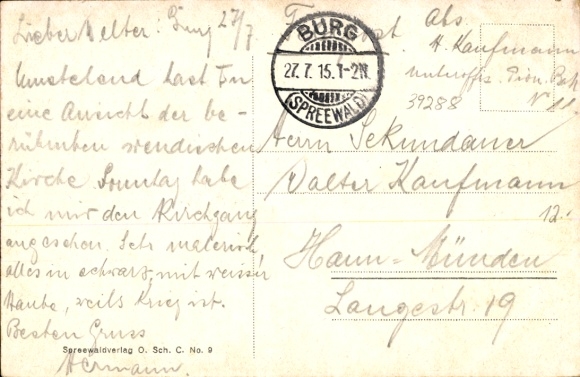 Lieber Walter! Burg 27/7
Umstehend hast Du
eine Ansicht der be-
rühmten wendischen
Kirche. Sonntag habe
ich mir den Kirchgang
angesehen. Sehr malerisch
alles in schwarz, mit weisser
Haube, weils Krieg ist.
Besten Gruss
Hermann.
Spreewaldverlag O. Sch. C. No. 9
BURG
27.7.15.1-2N.
(SPREEWALD)
Abs.
H. Kaufmann
Unteroffz. Pion. Bat.
39288
Herrn Sekundaner
Walter Kaufmann
12.
Hann.-Münden
Langestr. 19